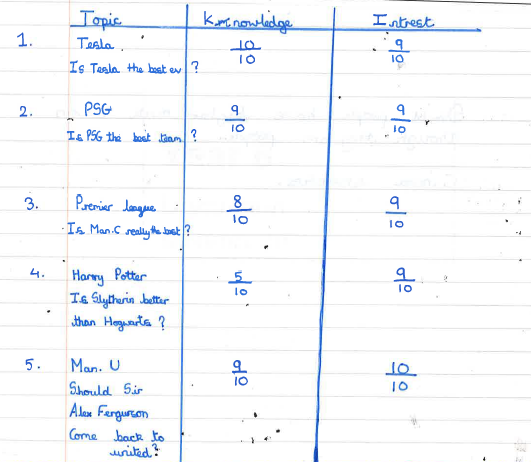 Topic Knowledge Intrest
1. Tesla 10/10 9/10
Is Tesla the best ev ?
2. PSG 9/10 9/10
Is PSG the best team ?
3. Premier league 8/10 9/10
Is Man.C really the best ?
4. Harry Potter 5/10 9/10
Is Slytherin better
than Hogwarts ?
5. Man. U 9/10 10/10
Should Sir
Alex Ferguson
Come back to
united?